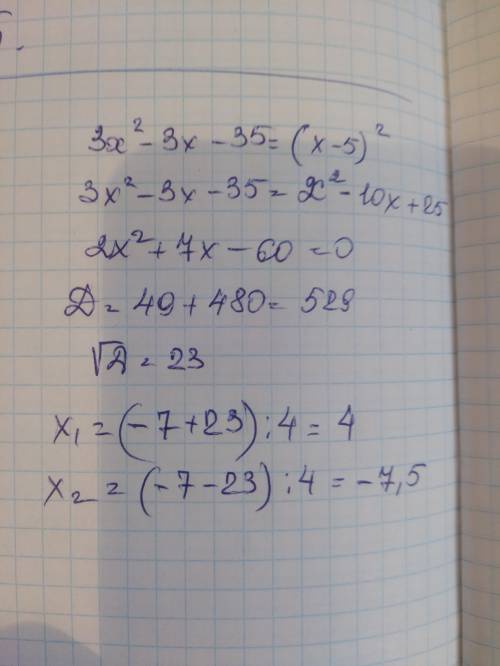 3x² - 3x - 35 = (x - 5)²
3x² - 3x - 35 = x² - 10x + 25
2x² + 7x - 60 = 0
D = 49 + 480 = 529
√D = 23
x₁ = (-7 + 23) : 4 = 4
x₂ = (-7 - 23) : 4 = -7,5